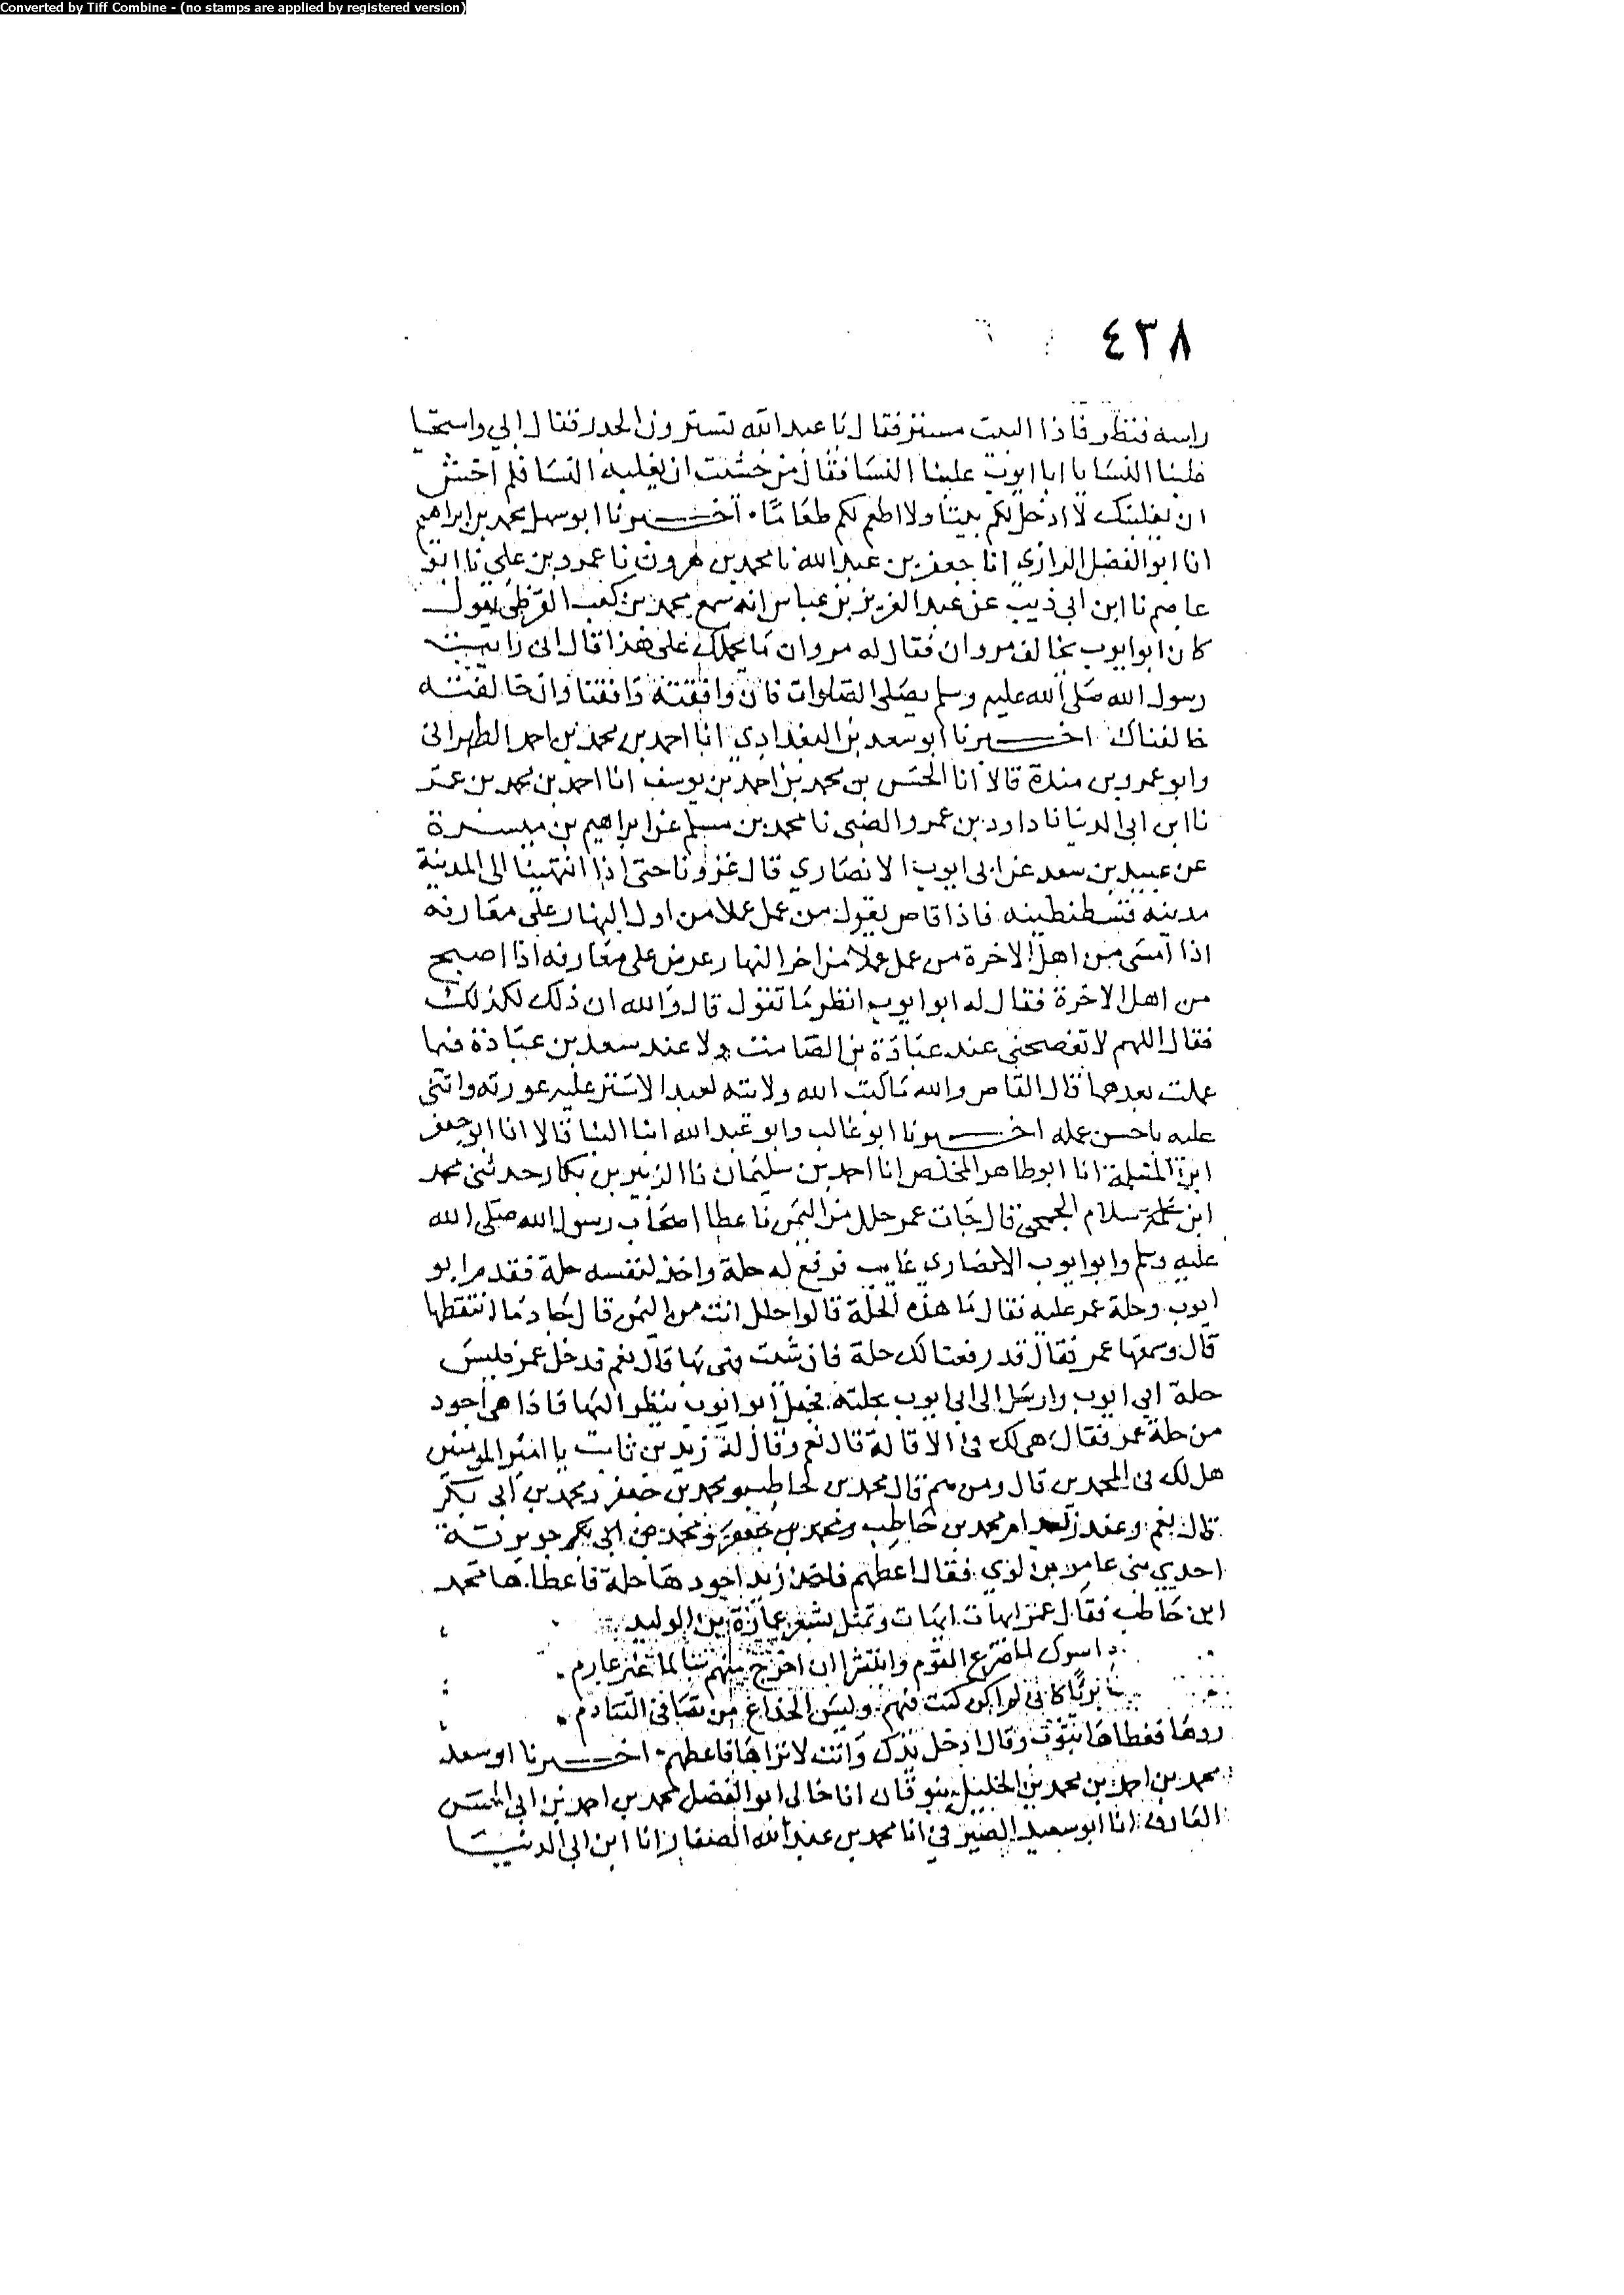 Converted by Tiff Combine - (no stamps are applied by registered version)
٤٣٨
راسه فنظر فاذا البيت مستتر فقال يا عبد الله تسترون الجدر فقال ابي واستحيا
غلبنا النسا يا ابا ايوب علبنا النسا فقال من خشيت ان يغلبه النسا فلم اخش
ان يغلبنك لا ادخل لكم بيتا ولا اطعم لكم طعاما اخبرنا ابو سهل محمد بن ابراهيم
انا ابو الفضل الرازي انا جعفر بن عبد الله نا محمد بن هرون نا عمرو بن علي نا ابو
عاصم نا ابن ابي ذيب عن عبد العزيز بن عباس انه سمع محمد بن كعب القرظي يقول
كان ابو ايوب يخالف مروان فقال له مروان ما يحملك على هذا قال اني رايت
رسول الله صلى الله عليه وسلم يصلي الصلوات فان وافقته وافقنا وان خالفته
خالفناك اخبرنا ابو سعد بن البغدادي انا احمد بن محمد بن احمد الطهراني
وابو عمرو بن مندة قالا انا الحسن بن محمد بن احمد بن يوسف انا احمد بن محمد بن عمر
نا ابن ابي الدنيا نا داود بن عمرو الضبي نا محمد بن مسلم عن ابراهيم بن ميسرة
عن عبيد بن سعد عن ابي ايوب الانصاري قال غزونا حتى اذا انتهينا الى المدينة
مدينه قسطنطينه فاذا قاص يقول من عمل عملا من اول النهار على معارفه
اذا امسى من اهل الاخرة من عمل عملا من اخر النهار عرض على معارفه اذا اصبح
من اهل الاخرة فقال له ابو ايوب انظر ما تقول قال والله ان ذلك لكذلك
فقال اللهم لا تفضحني عند عبادة بن الصامت ولا عند سعد بن عبادة فيما
عملت بعدهما قال القاص والله ما كتب الله ولايته لعبد الا ستر عليه عورته واثنى
عليه باحسن عمله اخبرنا ابو غالب وابو عبد الله ابنا البنا قالا انا ابو جعفر
ابن المسلمة انا ابو طاهر المخلص انا احمد بن سليمان نا الزبير بن بكار حدثني محمد
ابن سلام الجمحي قال جات عمر حلل من اليمن فاعطا اصحاب رسول الله صلى الله
عليه وسلم وابو ايوب الانصاري غايب فرفع له حلة واخذ لنفسه حلة فقدم ابو
ايوب وحلة عمر عليه فقال ما هذه الحلة قالوا حلل اتت من اليمن قال
قال وسمعها عمر فقال قد رفعنا لك حلة فان شيت فهي بها قال نعم فدخل عمر فلبس
حلة ابي ايوب وارسل الى ابي ايوب بحلته فجعل ابو ايوب ينظر اليها فاذا هي اجود
من حلة عمر فقال هل لك في الاقالة قال نعم وقال له زيد بن ثابت يا امير المومنين
هل لك في المحمدين قال ومن هم قال محمد بن حاطب ومحمد بن جعفر ومحمد بن ابي بكر
قال نعم وعند زيد ام محمد بن حاطب ومحمد بن جعفر ومحمد بن ابي بكر جويرية
احدي بني عامر بن لوي فقال اعطهم فاخذ زيد اجودها حلة فاعطاها محمد
ابن حاطب فقال عمر ايهات ايهات وتمثل بشعر عمارة بن الوليد
لما صرع القوم وانتشوا ان اخرج منهم سالما غير غارم
بريا كاني لم اكن كنت فيهم وليس الخداع من تصافي التنادم
ردها فغطاها بثوب وقال ادخل يدك وانت لا تراها فاعطهم اخبرنا ابو سعد
محمد بن احمد بن محمد بن الخليل بنوقان انا خالي ابو الفضل محمد بن احمد بن ابي الحسن
العارف انا ابو سعيد الصيرفي انا محمد بن عبد الله الصفار انا ابن ابي الدنيا